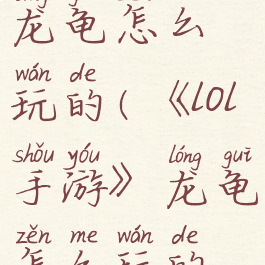 龙龟怎么
wán de
玩的(《lol
shǒu yóu lóng guī
手游》龙龟
zěn me wán de
怎么玩的